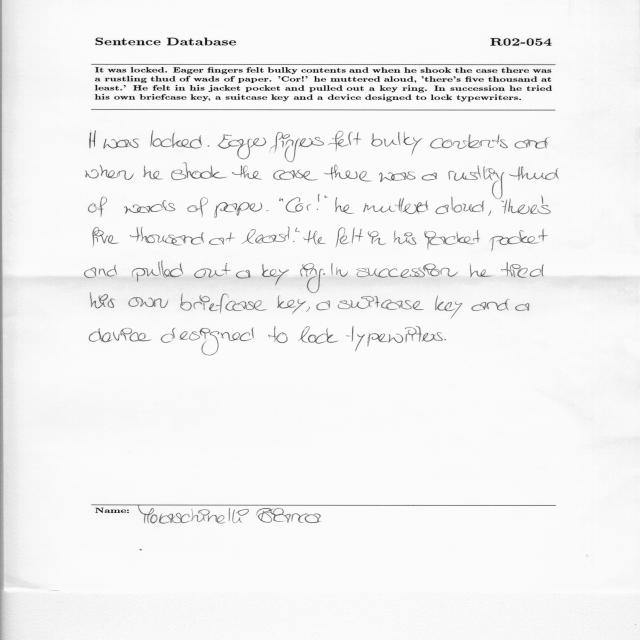 Sentence Database R02-054
It was locked. Eager fingers felt bulky contents and when he shook the case there was
a rustling thud of wads of paper. 'Cor!' he muttered aloud, 'there's five thousand at
least.' He felt in his jacket pocket and pulled out a key ring. In succession he tried
his own briefcase key, a suitcase key and a device designed to lock typewriters.
It was locked. Eager fingers felt bulky contents and
when he shook the case there was a rustling thud
of wads of paper. "Cor!" he muttered aloud, there's
five thousand at least." He felt in his jacket pocket
and pulled out a key ring. In succession he tried
his own briefcase key, a suitcase key and a
device designed to lock typewriters.
Name: